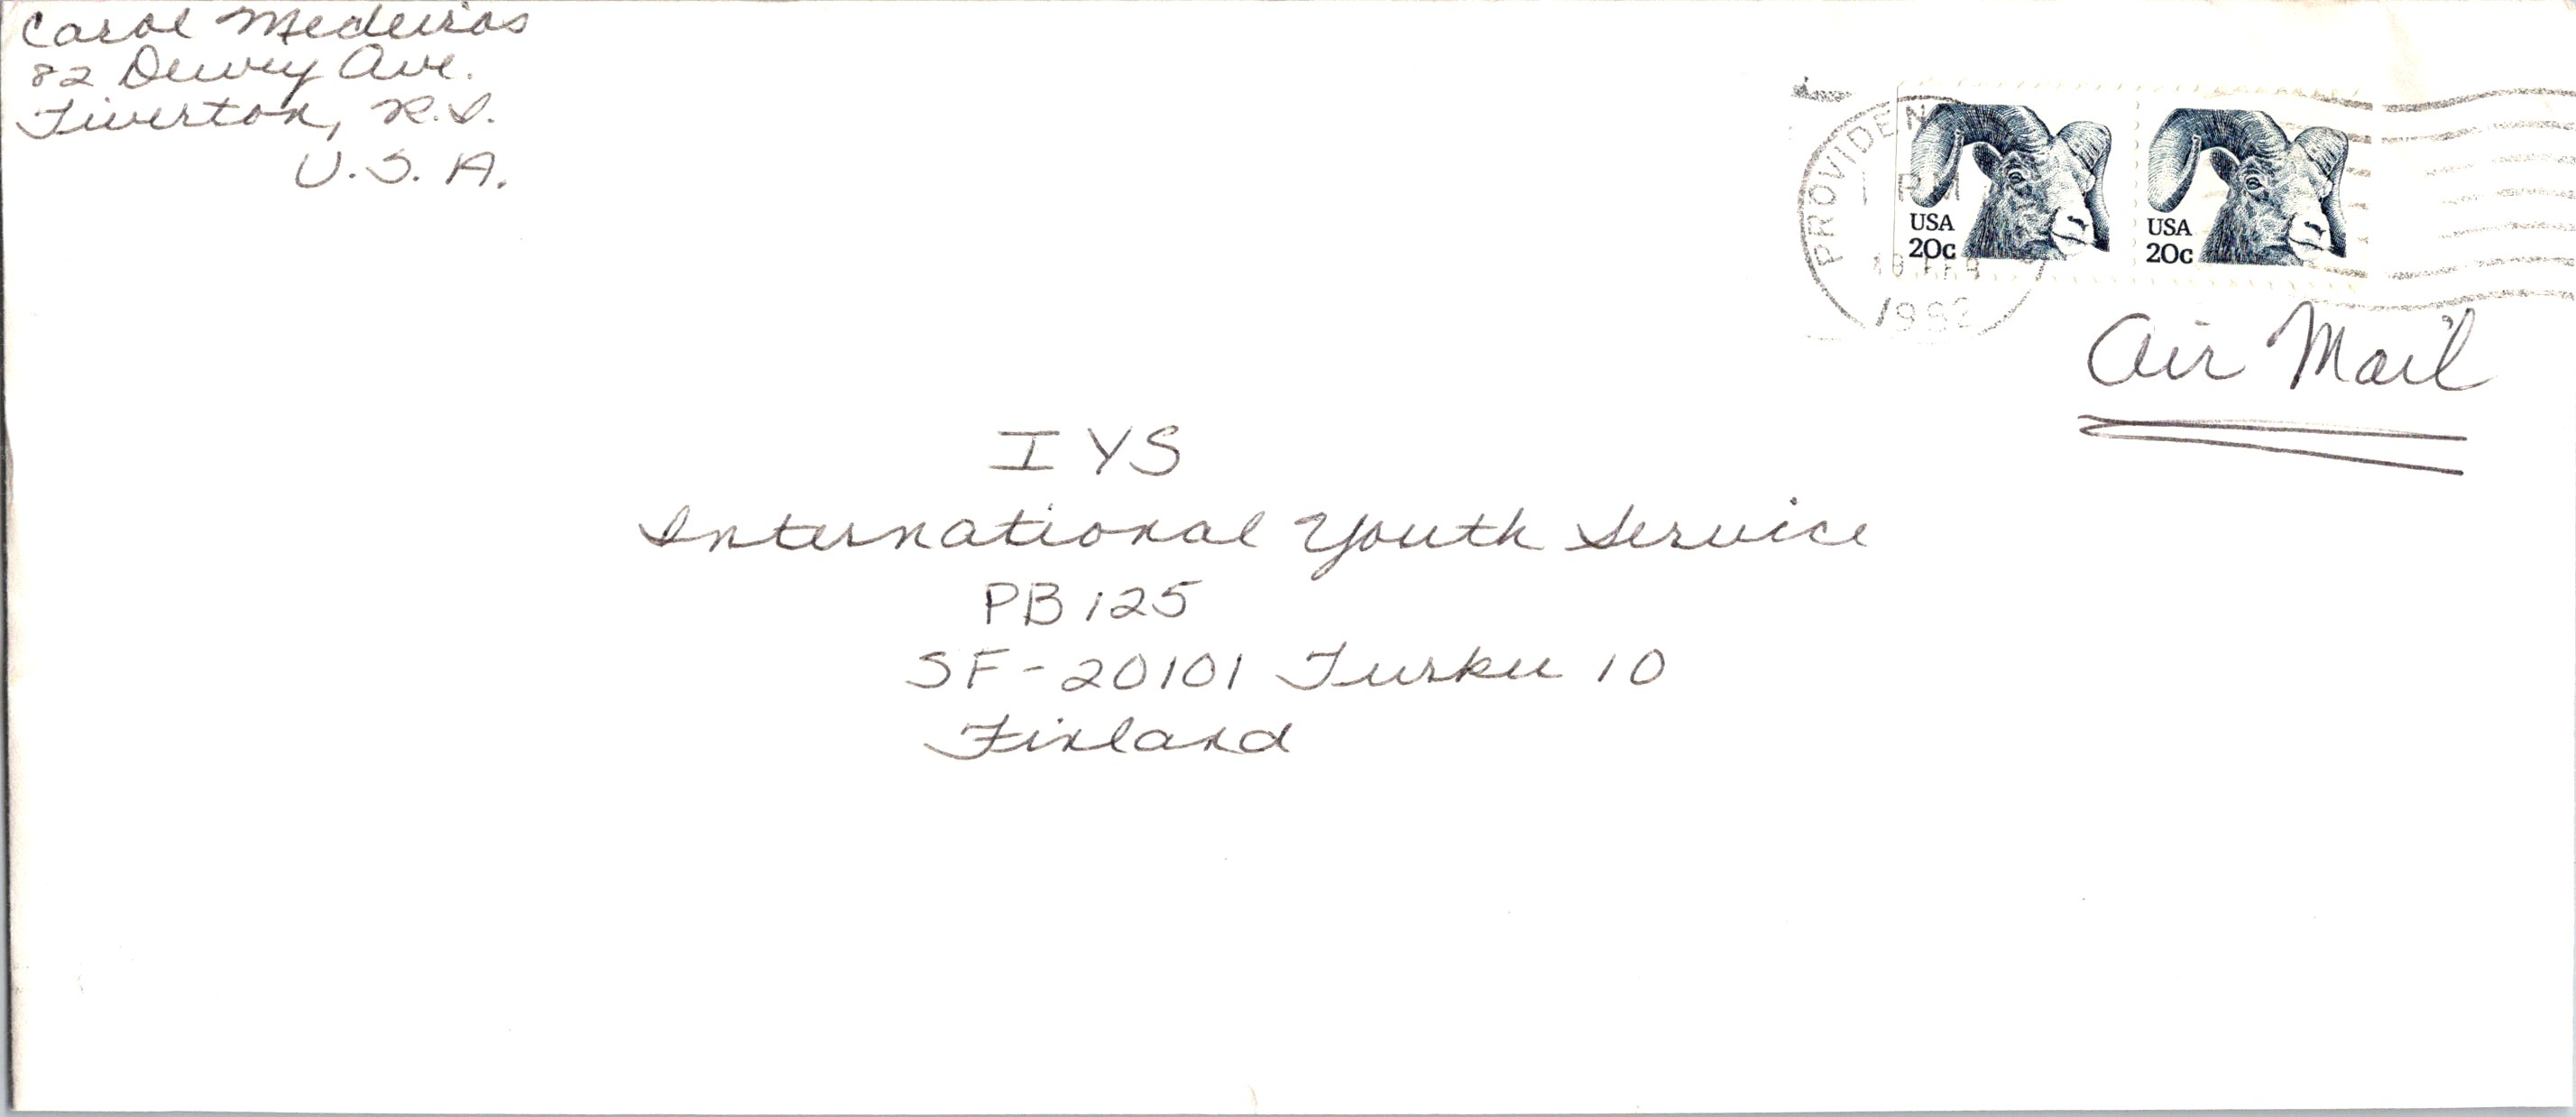 Carol Medeiros
82 Dewey Ave.
Tiverton, R.I.
U.S.A.
PROVIDEN
PM
1982
USA
20c
USA
20c
Air Mail
IYS
International Youth Service
PB 125
SF-20101 Turku 10
Finland